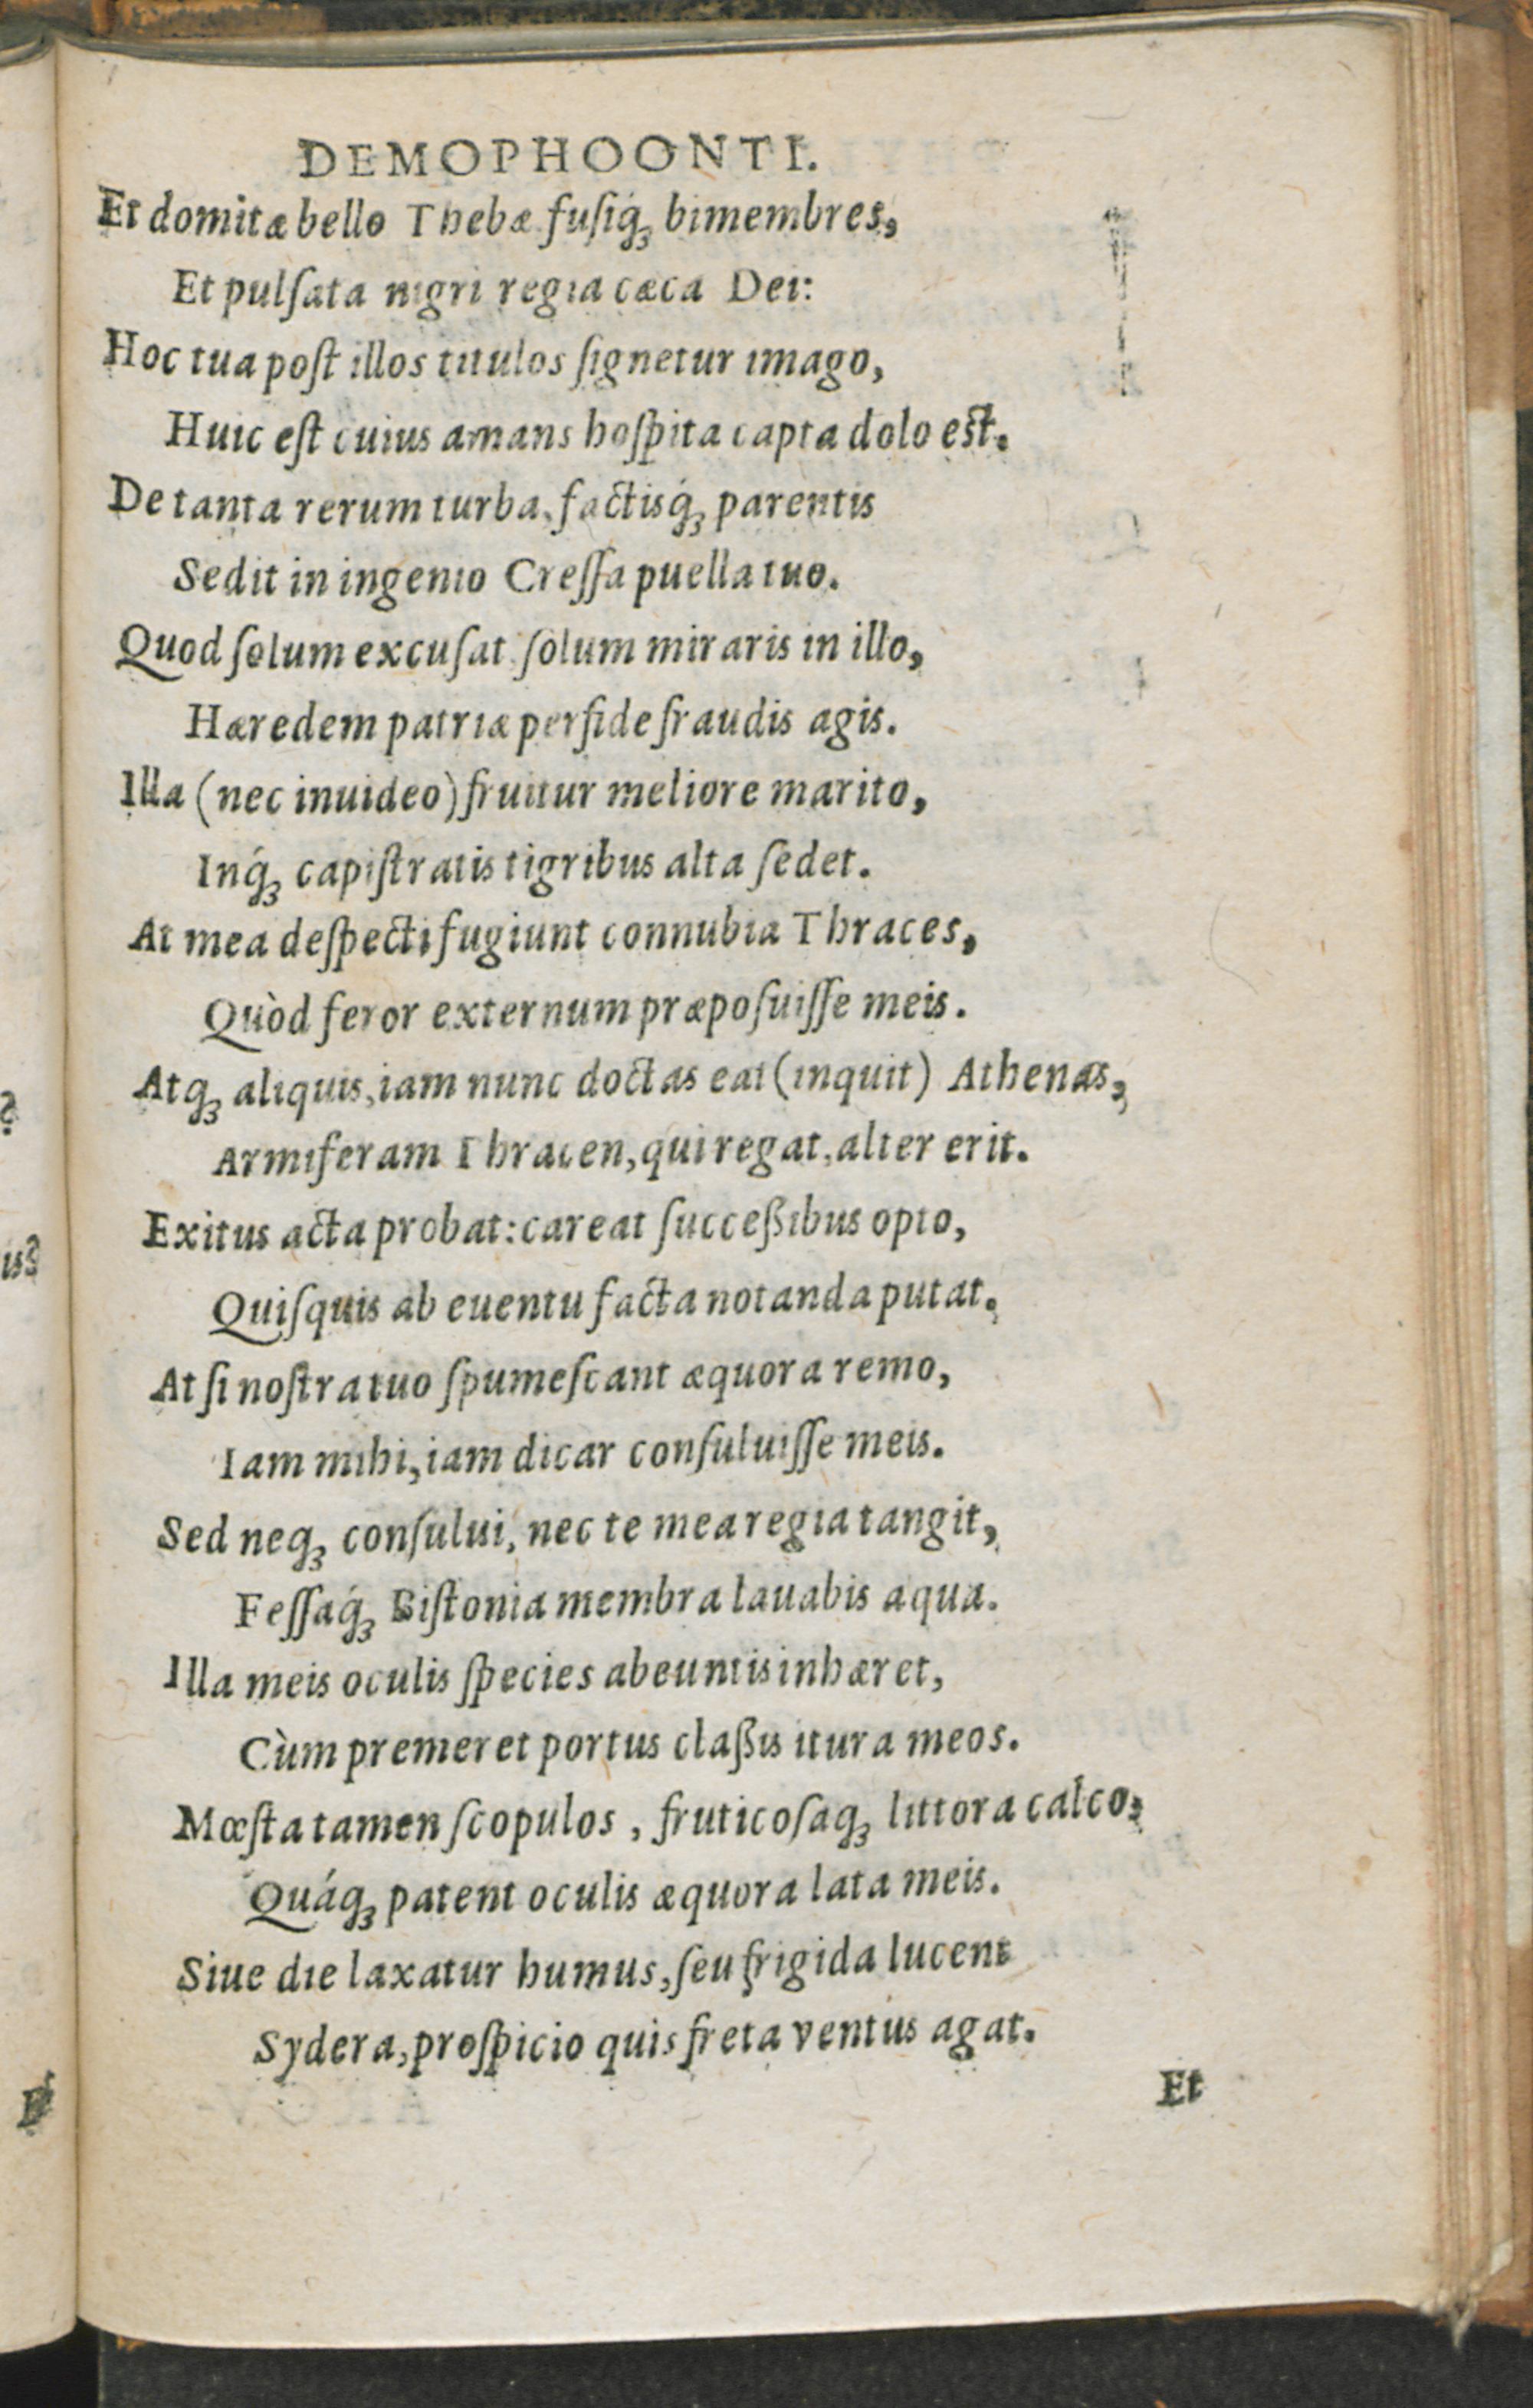 DEMOPHOONTI.
Et domitæ bello Thebæ fuſiq́ꝫ bimembres,
Et pulſata nigri regia cæca Dei:
Hoc tua poſt illos titulos ſignetur imago,
Huic eſt cuius amans hoſpita capta dolo eſt.
De tanta rerum turba, factisq́ꝫ parentis
Sedit in ingenio Creſſa puella tuo.
Quod ſolum excuſat ſolum miraris in illo,
Hæredem patriæ perfide fraudis agis.
Illa (nec inuideo) fruitur meliore marito,
Inq́ꝫ capiſtratis tigribus alta ſedet.
At mea deſpecti fugiunt connubia Thraces,
Quòd feror externum præpoſuiſſe meis.
Atqꝫ aliquis, iam nunc doctas eat (inquit) Athenas,
Armiferam Thracen, qui regat, alter erit.
Exitus acta probat: careat ſucceßibus opto,
Quiſquis ab euentu facta notanda putat.
At ſi noſtra tuo ſpumeſcant æquora remo,
Iam mihi, iam dicar conſuluiſſe meis.
Sed neqꝫ conſului, nec te mea regia tangit,
Feſſaq́ꝫ Biſtonia membra lauabis aqua.
Illa meis oculis ſpecies abeuntis inhæret,
Cùm premeret portus claßis itura meos.
Mœſta tamen ſcopulos, fruticoſaqꝫ littora calco,
Quáqꝫ patent oculis æquora lata meis.
Siue die laxatur humus, ſeu frigida lucent
Sydera, proſpicio quis freta ventus agat.
Et